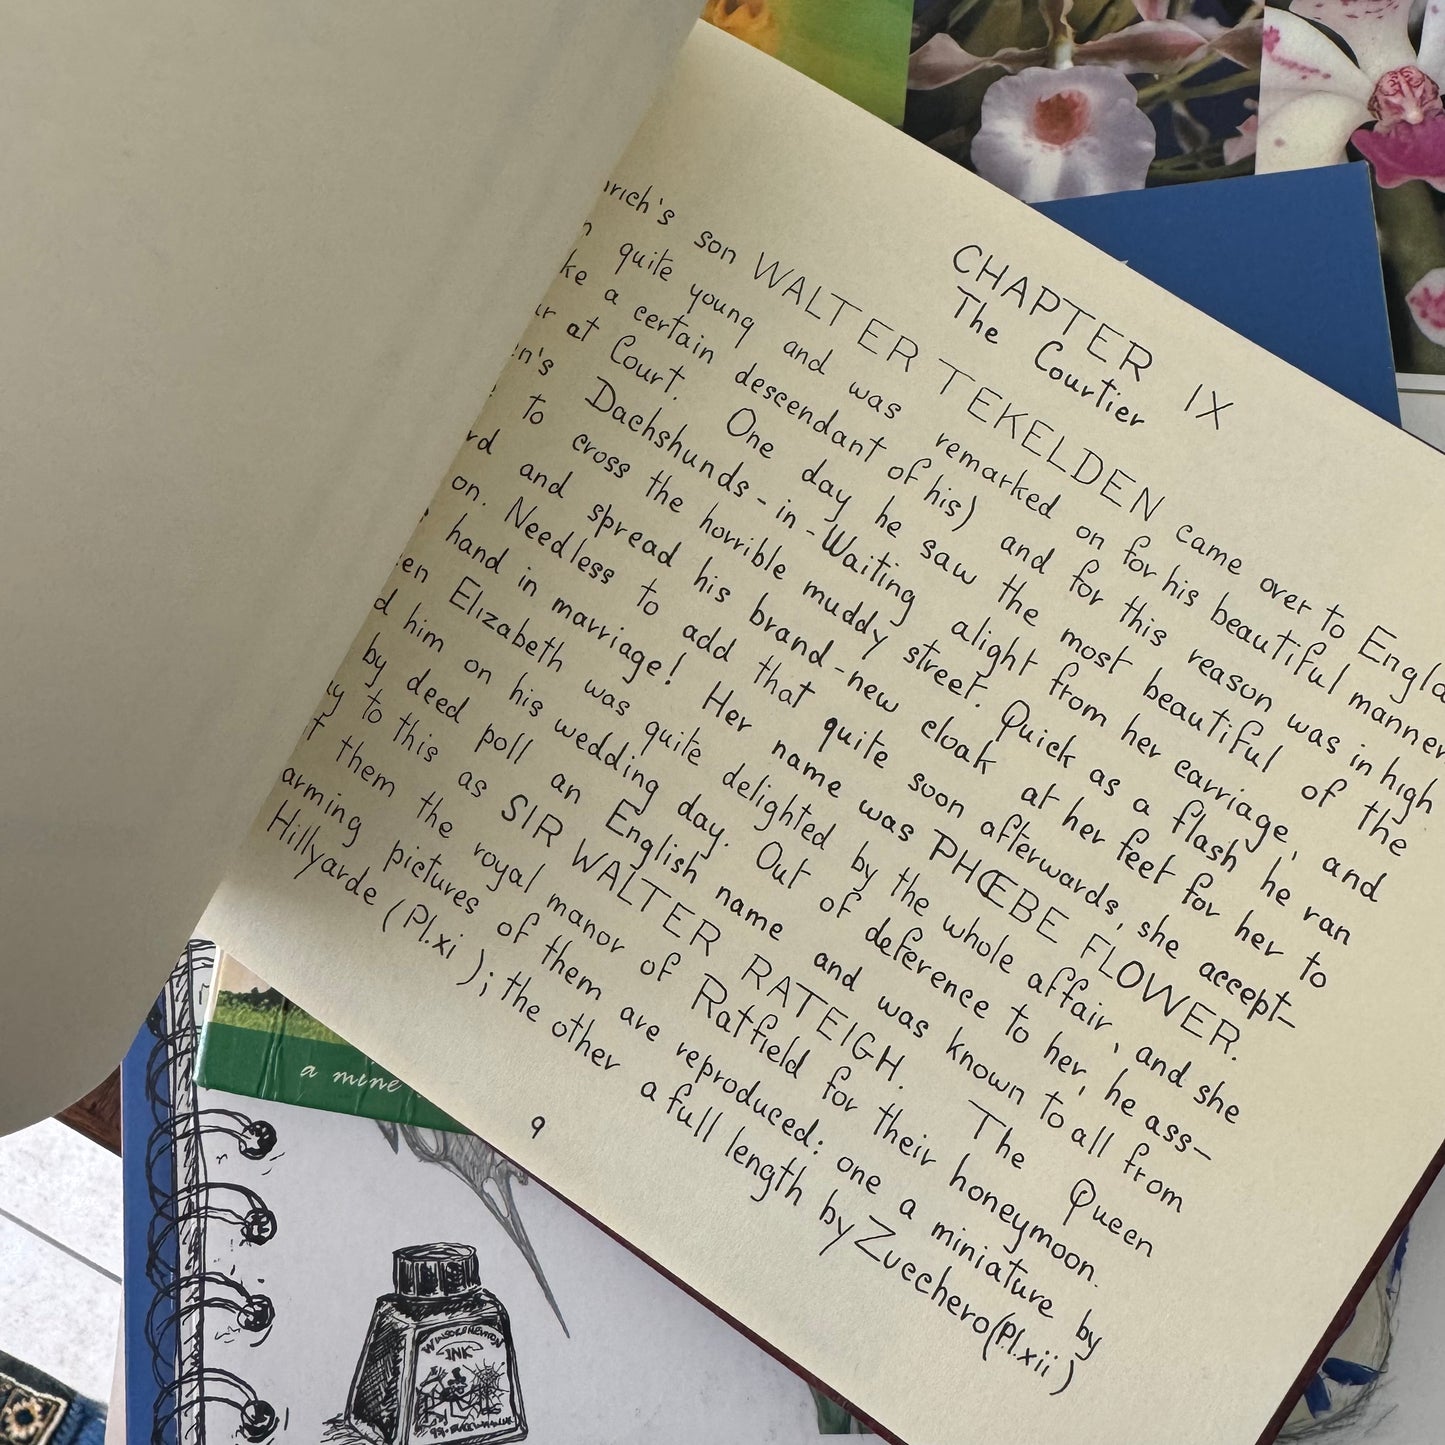 CHAPTER IX
The Courtier
nrich's son WALTER TEKELDEN came over to Engla
n quite young and was remarked on for his beautiful manner
ke a certain descendant of his) and for this reason was in high
ur at Court. One day he saw the most beautiful of the
en's Dachshunds-in-Waiting alight from her carriage, and
to cross the horrible muddy street. Quick as a flash he ran
rd and spread his brand-new cloak at her feet for her to
on. Needless to add that quite soon afterwards, she accept-
hand in marriage! Her name was PHŒBE FLOWER.
en Elizabeth was quite delighted by the whole affair, and she
d him on his wedding day. Out of deference to her, he ass-
by deed poll an English name and was known to all from
ay to this as SIR WALTER RATEIGH. The Queen
t them the royal manor of Ratfield for their honeymoon.
arming pictures of them are reproduced: one a miniature by
Hillyarde (Pl.xi); the other a full length by Zucchero (Pl.xii)
9
a mine
WINSOR&NEWTON
INK